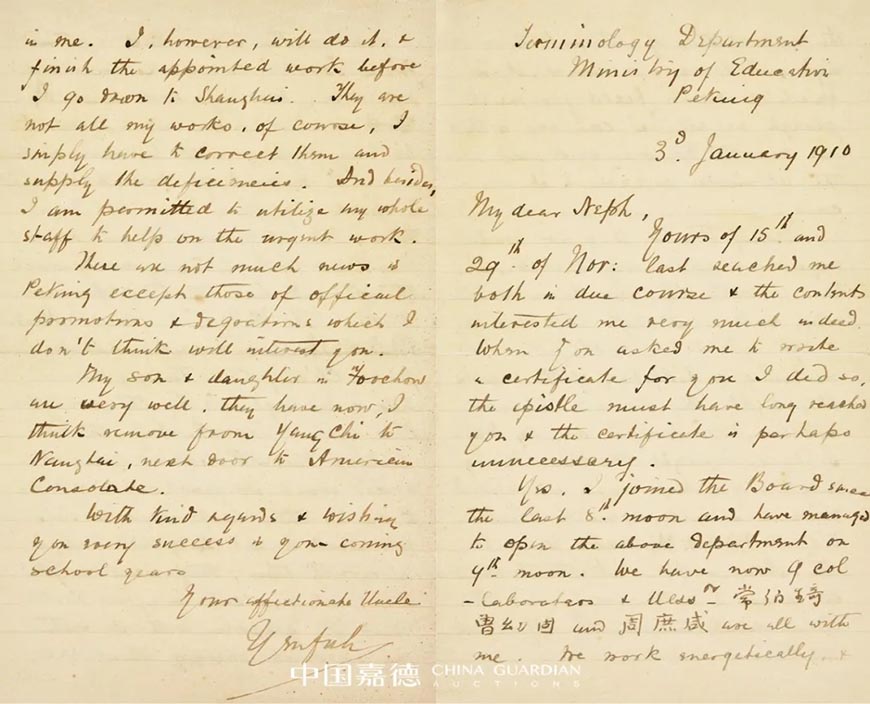 Terminology Department
Ministry of Education
Peking
3d. January 1910
My dear Neph,
Yours of 15th and
29th of Nov: last reached me
both in due course & the contents
interested me very much indeed.
When you asked me to write
a certificate for you I did so,
the epistle must have long reached
you & the certificate is perhaps
unnecessary.
Yes, I joined the Board since
the last 8th moon and have managed
to open the above department on
9th moon. We have now 9 col
-laborators & Messrs 常伯琦
曹幼固 and 周庶咸 are all with
me. We work energetically &
in me. I, however, will do it, &
finish the appointed work before
I go down to Shanghai. They are
not all my works, of course, I
simply have to correct them and
supply the deficiencies. And besides,
I am permitted to utilize my whole
staff to help on the urgent work.
There are not much news in
Peking except those of official
promotions & degradations which I
don't think will interest you.
My son & daughter in Foochow
are very well. they have now, I
think remove from Yang Chi to
Nangtai, next door to American
Consolate.
With kind regards & wishing
you every success in your coming
school years
Your affectionate Uncle
Yenfuh
中国嘉德 CHINA GUARDIAN
AUCTIONS